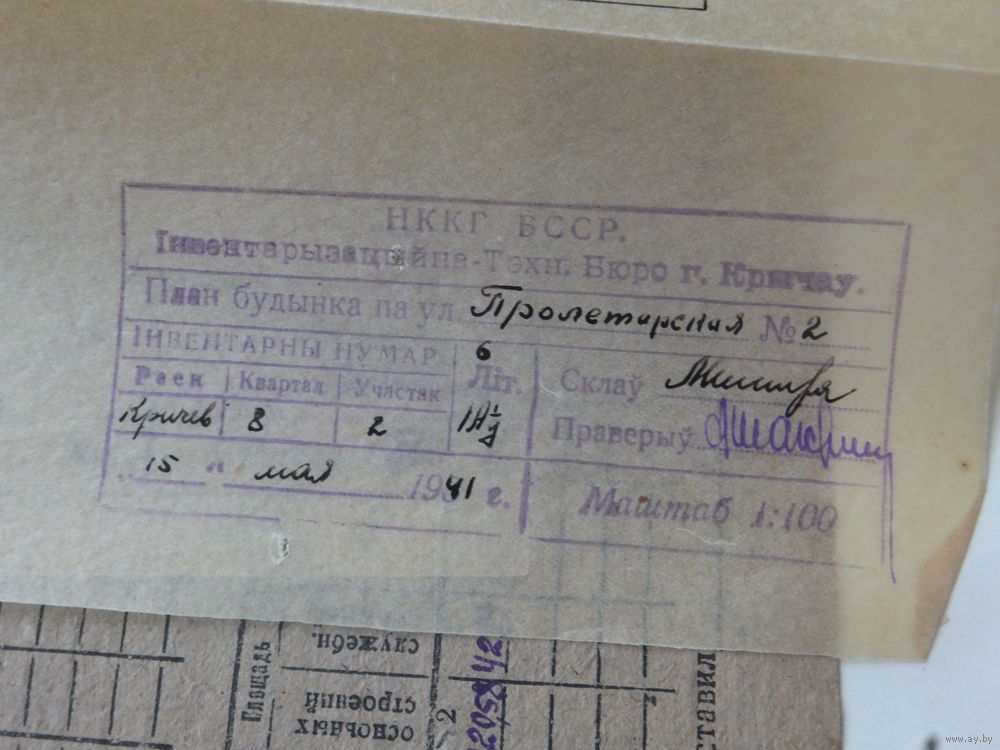 НККГ БССР.
Інвентарызацыйна-Тэхн. Бюро г. Крычау.
План будынка па ул. Пролетарская № 2
ІНВЕНТАРНЫ НУМАР 6
Раен Квартал Участак Літ.
Кричев 8 2
Склаў
Праверыў
15 " мая 1941 г.
Маштаб 1:100
Площадь
служебн.
основных
строений
2
42
2058
ставил
www.ay.by